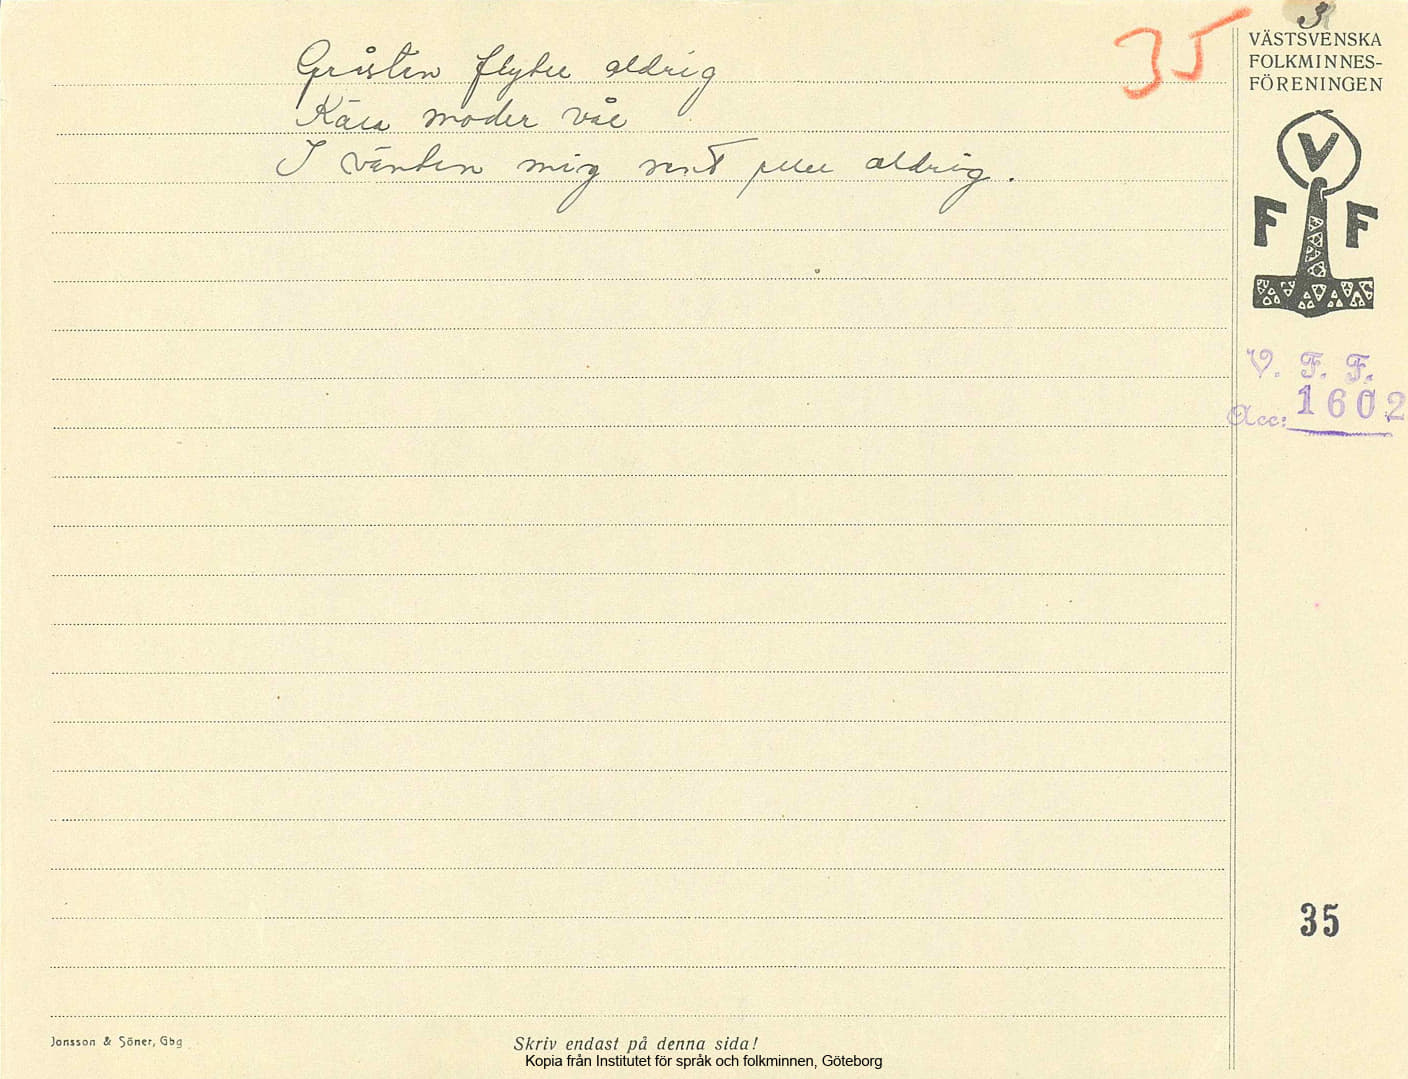 35
3
VÄSTSVENSKA
FOLKMINNES-
FÖRENINGEN
Gråsten flyter aldrig
Kära moder vår
I vänten mig sent eller aldrig.
V
F F
V. F. F.
Acc: 1602
35
Jonsson & Söner, Gbg
Skriv endast på denna sida!
Kopia från Institutet för språk och folkminnen, Göteborg